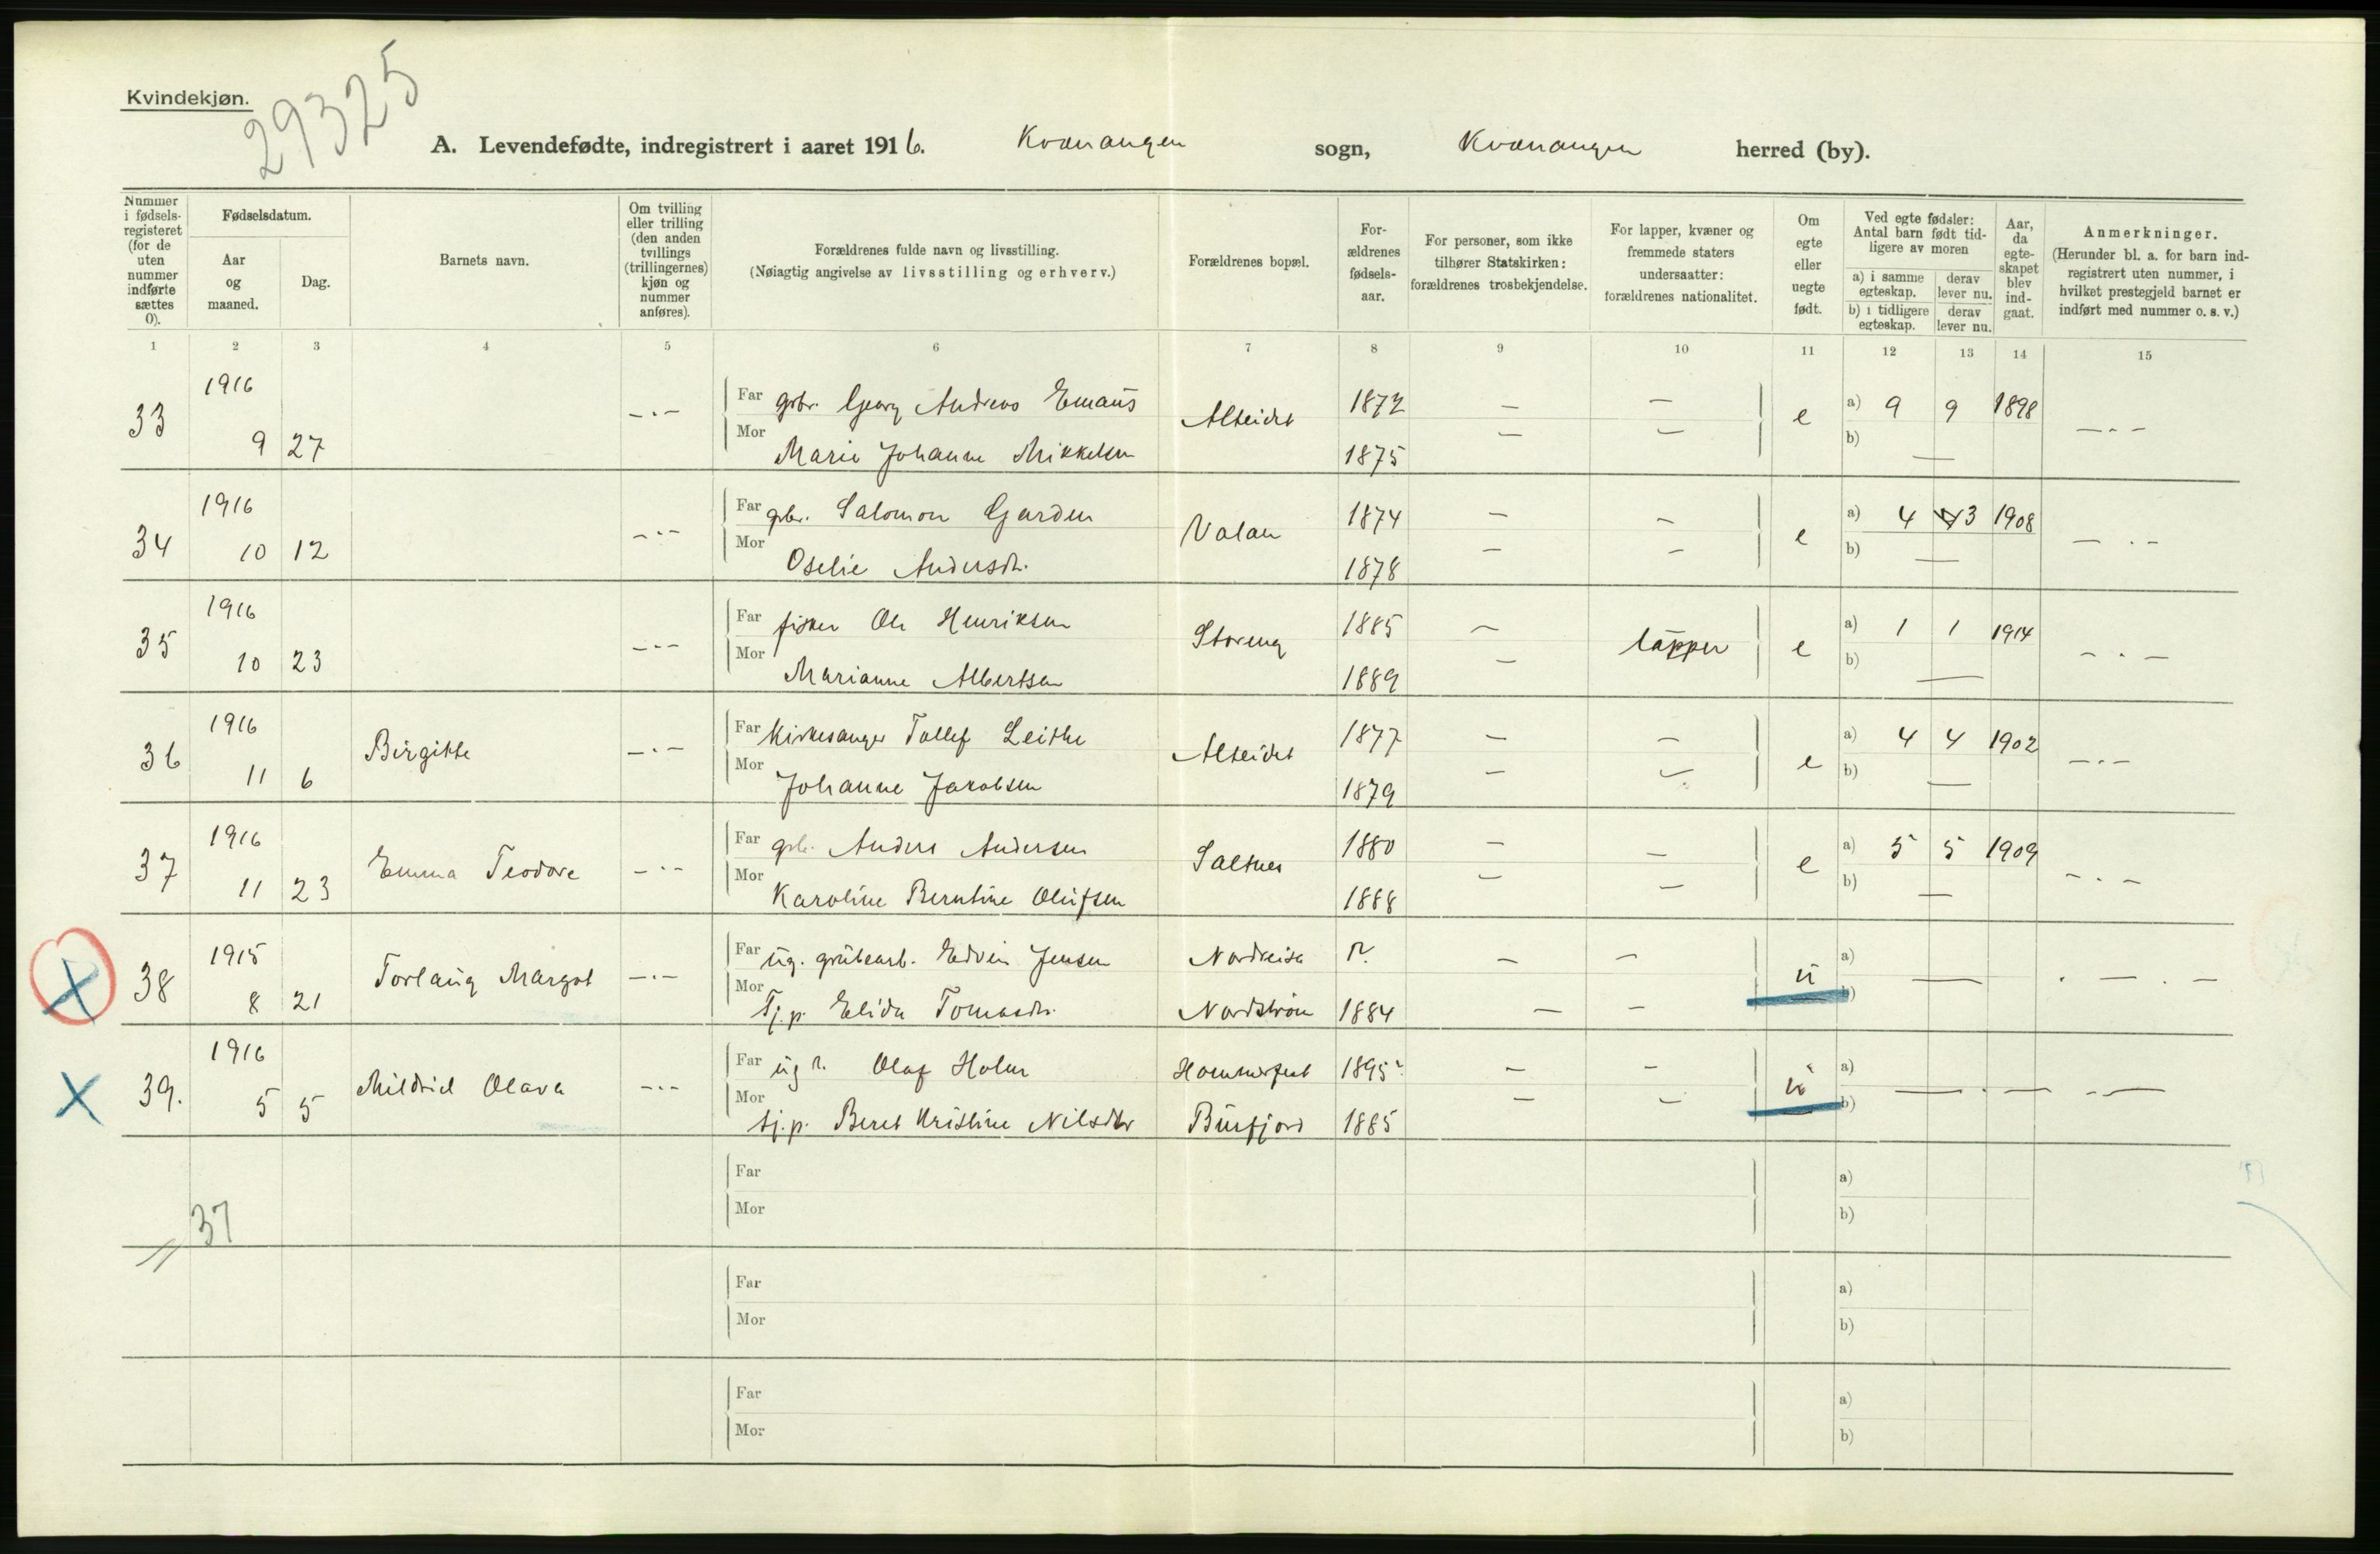 Kvindekjøn.
29325
A. Levendefødte, indregistrert i aaret 1916. Kvænangen sogn, Kvænangen herred (by).
Nummer i fødsels-registeret (for de uten nummer indførte sættes 0).
Fødselsdatum.
Aar og maaned.
Dag.
Barnets navn.
Om tvilling eller trilling (den anden tvillings (trillingernes) kjøn og nummer anføres).
Forældrenes fulde navn og livsstilling.
(Nøiagtig angivelse av livsstilling og erhverv.)
Forældrenes bopæl.
For-ældrenes fødsels-aar.
For personer, som ikke tilhører Statskirken: forældrenes trosbekjendelse.
For lapper, kvæner og fremmede staters undersaatter: forældrenes nationalitet.
Om egte eller uegte født.
Ved egte fødsler: Antal barn født tid-ligere av moren
a) i samme egteskap.
derav lever nu.
b) i tidligere egteskap.
derav lever nu.
Aar, da egte-skapet blev ind-gaat.
Anmerkninger.
(Herunder bl. a. for barn ind-registrert uten nummer, i hvilket prestegjeld barnet er indført med nummer o. s. v.)
1 2 3 4 5 6 7 8 9 10 11 12 13 14 15
33 1916 9 27 —·—
Far gbr. Georg Andreas Emaus Alteidet 1872 — — e a) 9 9 1898 —·—
Mor Marie Johanne Mikkelsen 1875 — — b) —
34 1916 10 12 —·—
Far gbr. Salomon Garden Valan 1874 — — e a) 4 3 1908 —·—
Mor Oselie Andersdtr. 1878 — — b) —
35 1916 10 23 —·—
Far fisker Ole Henriksen Storeng 1885 — lapper e a) 1 1 1914 —·—
Mor Marianne Albertsen 1889 — b) —
36 1916 11 6 Birgitte —·—
Far Kirkesanger Tollef Leithe Alteidet 1877 — — e a) 4 4 1902 —·—
Mor Johanne Jakobsen 1879 — — b) —
37 1916 11 23 Emma Teodore —·—
Far gbr. Anders Andersen Saltnes 1880 — — e a) 5 5 1909 —·—
Mor Karoline Berntine Olufsen 1888 — — b) —
X 38 1915 8 21 Torlaug Margot —·—
Far ug. grubearb. Edvin Jensen Nordreisa ?. — — u a) — · — · —
Mor Tj.p. Elida Tomasdtr. Nordstrøm 1884 — — b)
X 39. 1916 5 5 Mildrid Olava —·—
Far ug ?. Olaf Holm Hammerfest 1895? — — u a) — · — ·—
Mor tj.p. Beret Kristine Nilsdtr Burfjord 1885 — — b)
Far a)
Mor b)
37
Far a)
Mor b)
Far a)
Mor b)